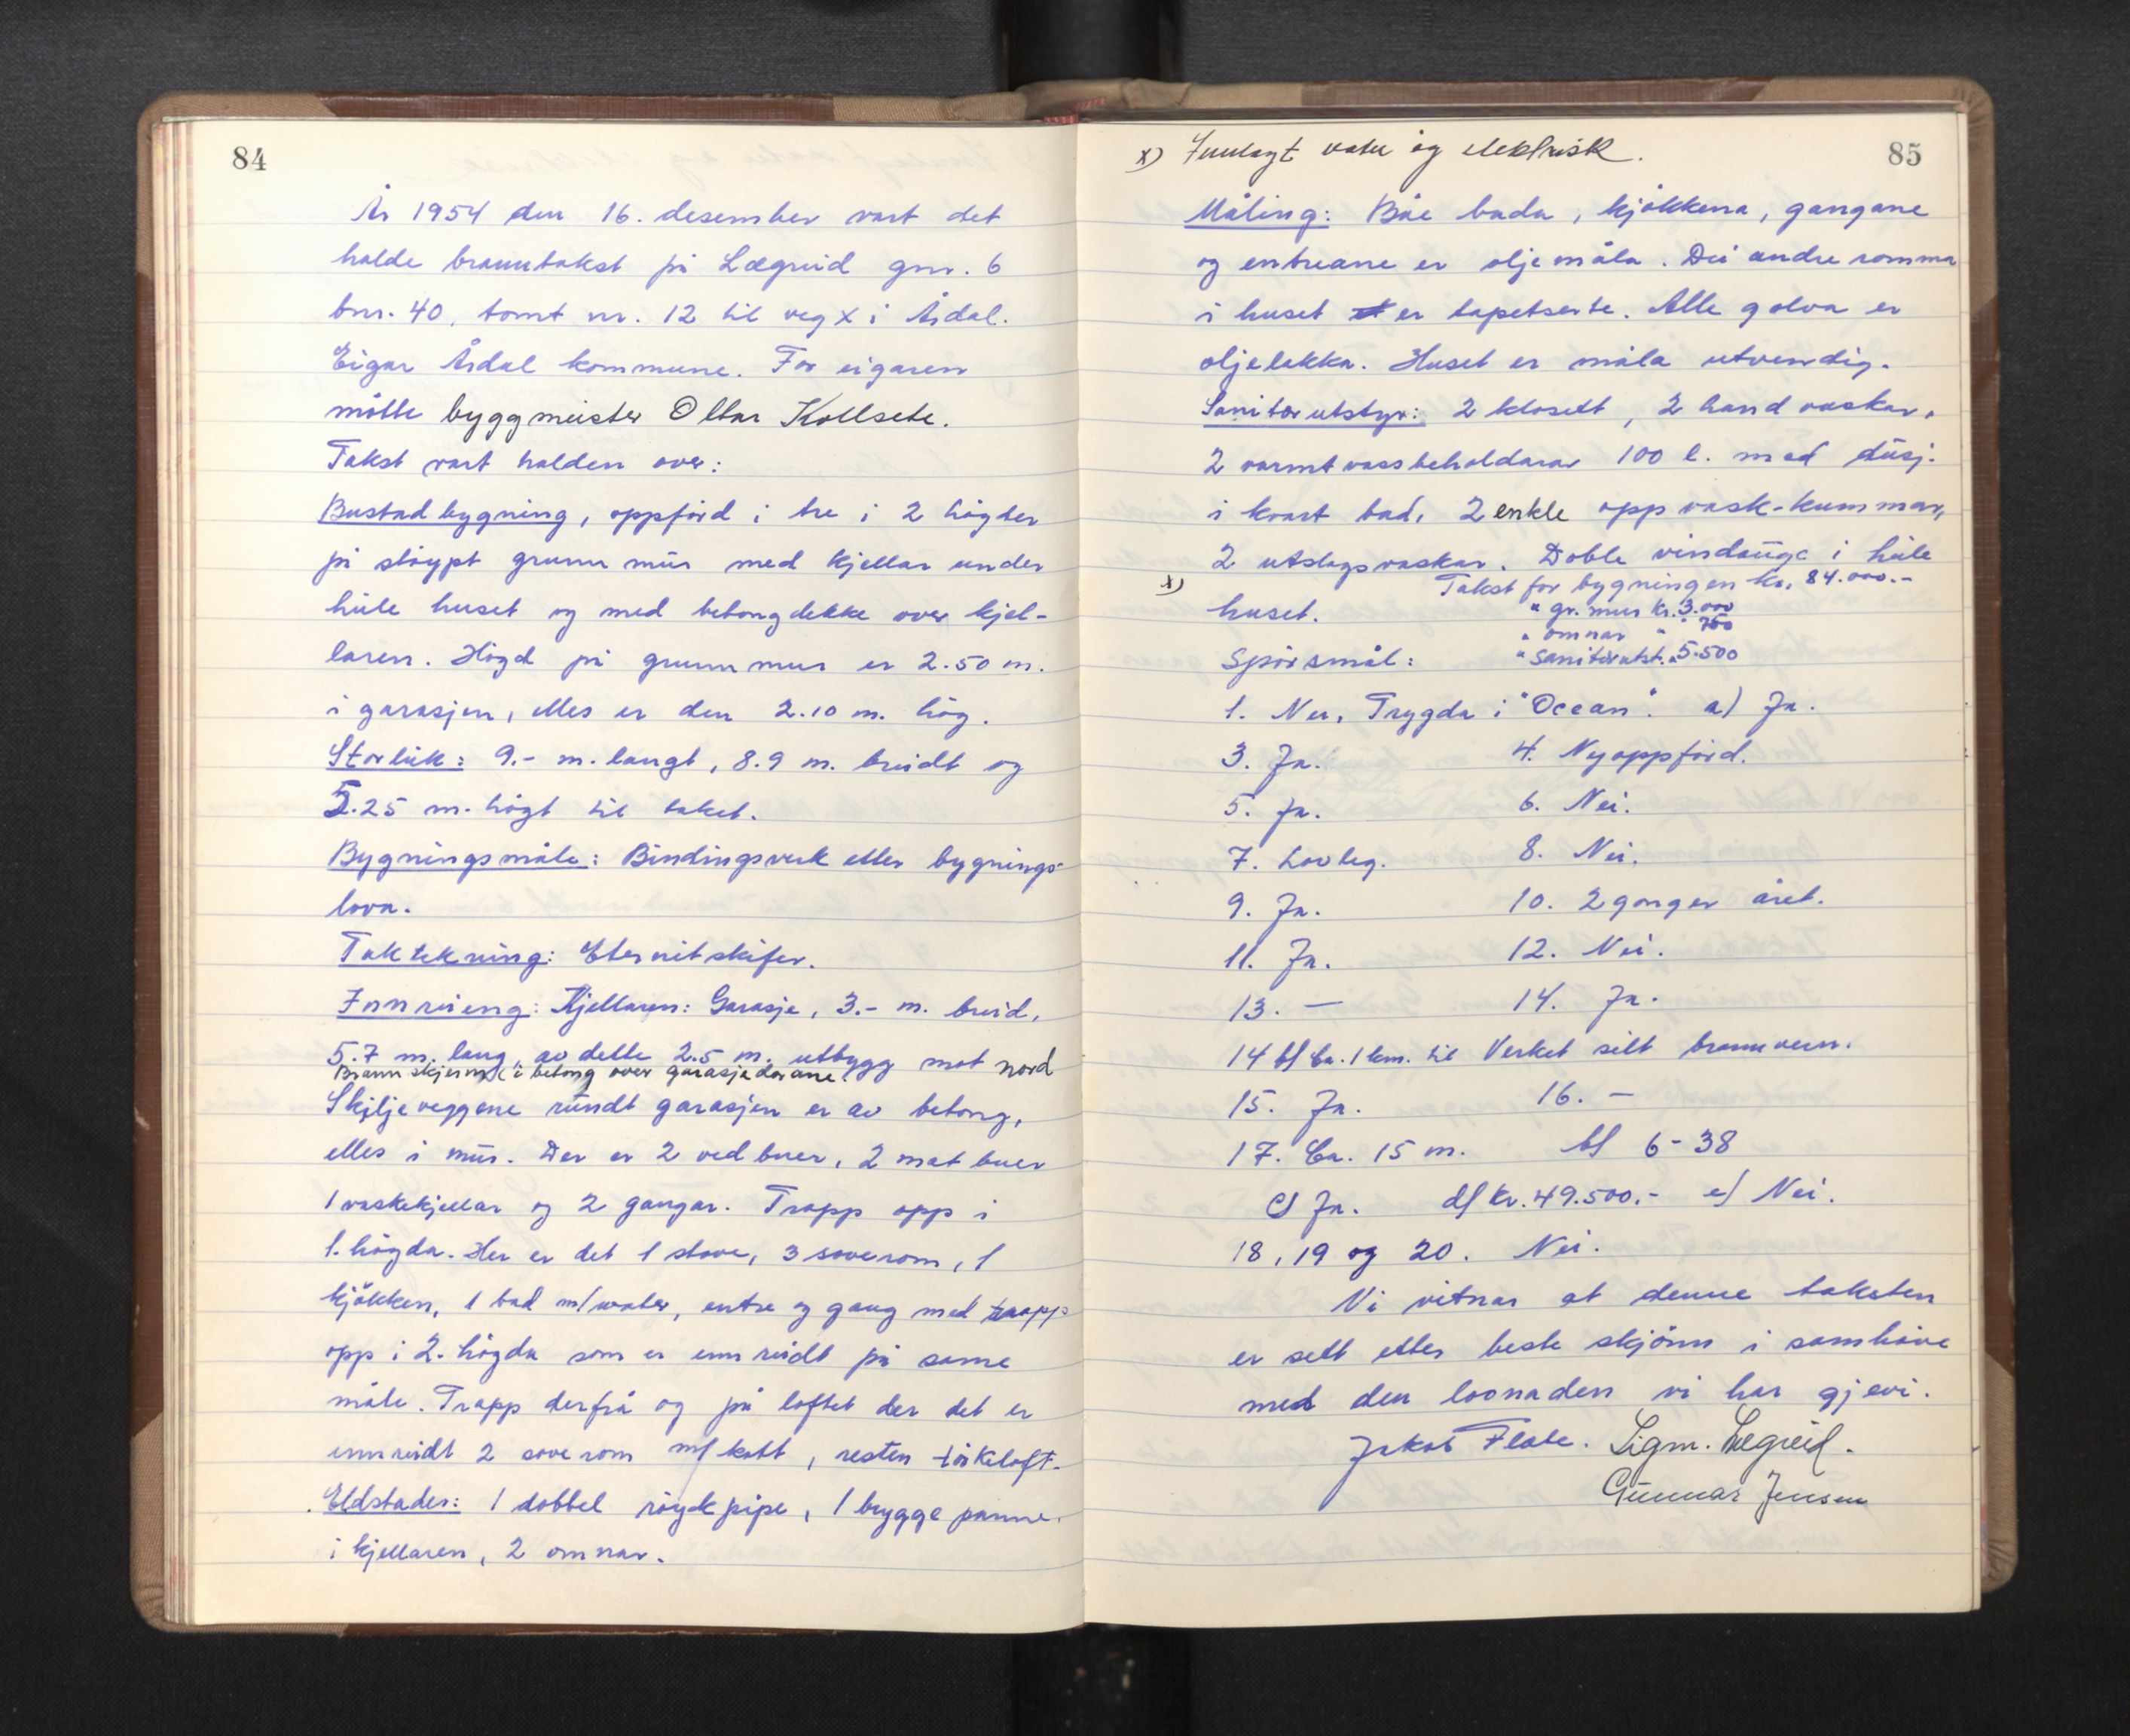 84
År 1954 den 16. desember vart det
halde branntakst på Lægreid gnr. 6
bnr. 40, tomt nr. 12 til veg X i Årdal.
Eigar Årdal kommune. For eigaren
møtte byggmeister Ottar Kollsete.
Takst vart halden over:
Bustadbygning, oppførd i tre i 2 høgder
på støypt grunnmur med kjellar under
heile huset og med betongdekke over kjel-
laren. Høgd på grunnmur er 2.50 m.
i garasjen, elles er den 2.10 m. høg.
Storleik: 9.- m. langt, 8.9 m. breidt og
5.25 m. høgt til taket.
Bygningsmåte: Bindingsverk etter bygnings-
lova.
Taktekning: Eternitskifer.
Innreieng: Kjellaren: Garasje, 3.- m. breid,
5.7 m. lang, av dette 2.5 m. utbygg mot nord
Brannskjerm i betong over garasjedørane.
Skiljeveggene rundt garasjen er av betong,
elles i mur. Der er 2 vedbuer, 2 matbuer
1 vaskekjellar og 2 gangar. Trapp opp i
1. høgda. Her er det 1 stove, 3 soverom, 1
kjøkken, 1 bad m/water, entre og gang med trapp
opp i 2. høgda som er innreidt på same
måte. Trapp derfrå og på loftet der det er
innreidt 2 soverom m/kott, resten tørkeloft.
Eldstader: 1 dobbel røykpipe, 1 bryggepanne
i kjellaren, 2 omnar.
85
x) Innlagt vatn og elektrisk.
Måling: Båe bada, kjøkkena, gangane
og entreane er oljemåla. Dei andre romma
i huset er tapetserte. Alle golva er
oljelakka. Huset er måla utvendig.
Sanitærutstyr: 2 klosett, 2 handvaskar,
2 varmtvassbehaldarar 100 l. med dusj
i kvart bad, 2 enkle oppvask-kummar,
2 utslagsvaskar. Doble vindauge i heile
x) Takst for bygningen kr. 84.000.-
huset. " gr. mur kr. 3.000
" omnar " 700
Spørsmål: " Sanitærutst. " 5.500
1. Nei, Trygda i "Ocean". a) Ja.
3. Ja. 4. Nyoppførd.
5. Ja. 6. Nei.
7. Lovleg. 8. Nei.
9. Ja. 10. 2 gonger året.
11. Ja. 12. Nei.
13. — 14. Ja.
14 b/ Ca. 1 km. til Verket sitt brannvern.
15. Ja. 16. —
17. Ca. 15 m. b/ 6-38
c/ Ja. d/ kr. 49.500.- e/ Nei.
18, 19 og 20. Nei.
Vi vitnar at denne taksten
er sett etter beste skjønn i samhøve
med den lovnaden vi har gjevi.
Jakob Flate. Sigm. Lægreid.
Gunnar Jensen